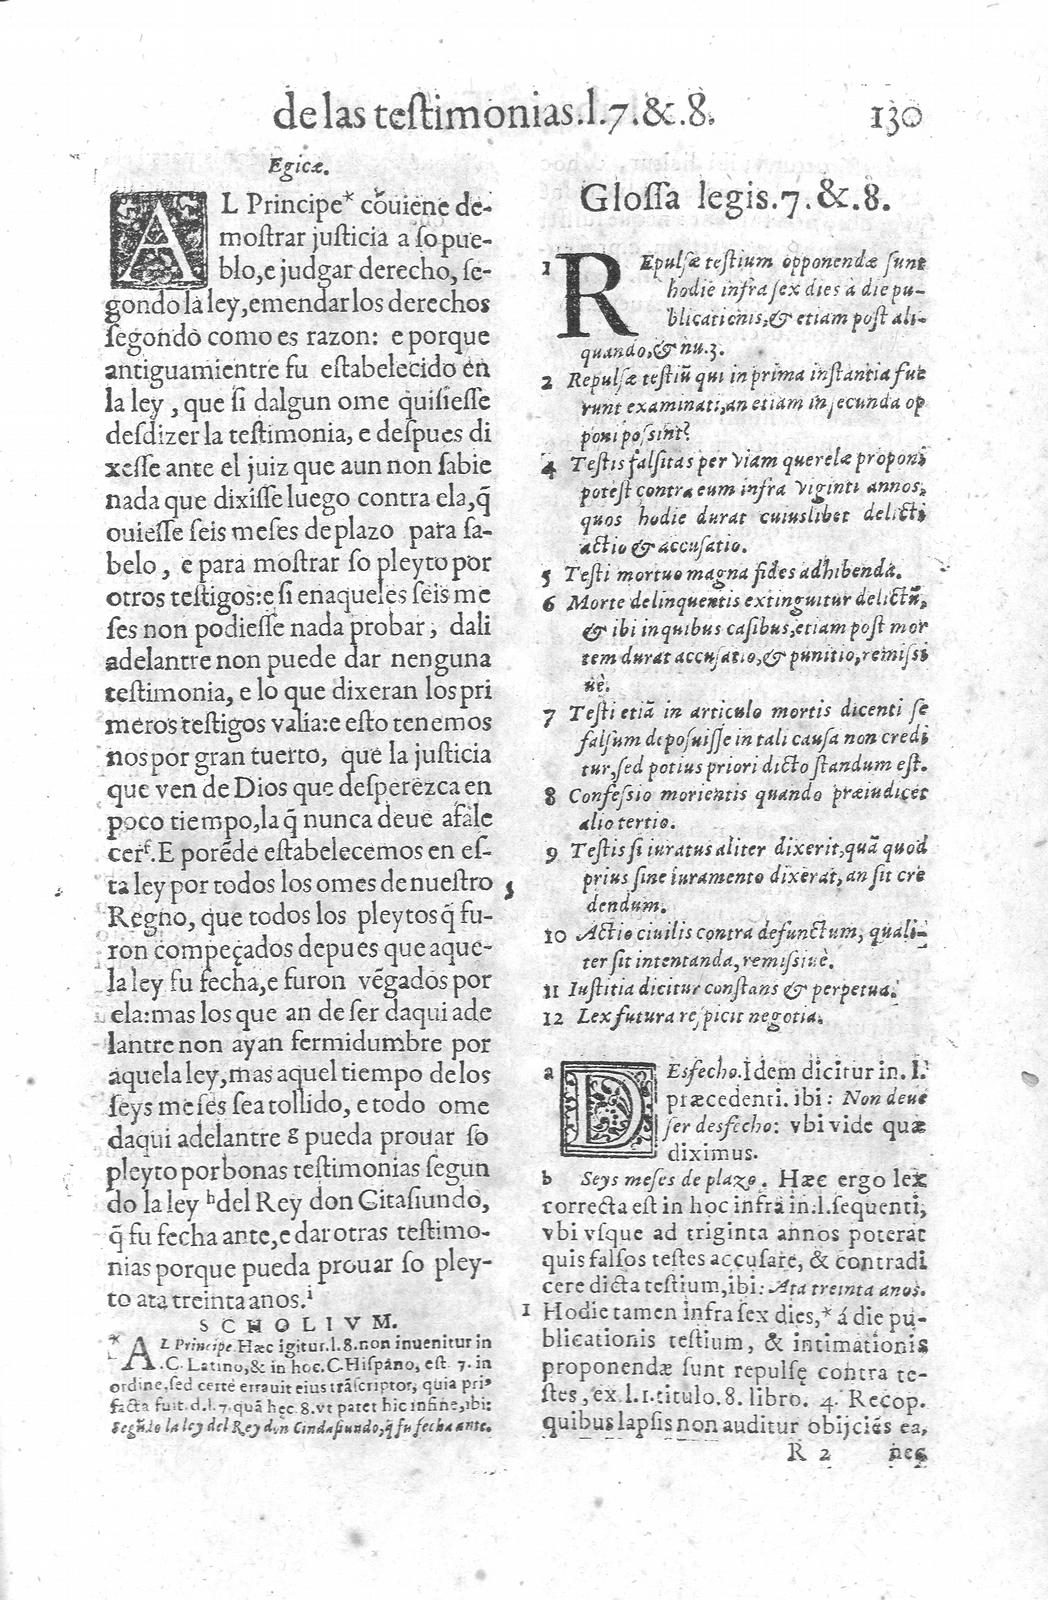 de las testimonias.l.7.&.8. 130
Egicæ.
AL Principe* cõuiene de-
mostrar justicia a so pue-
blo, e judgar derecho, se-
gondo la ley, emendar los derechos
segondo como es razon: e porque
antiguamientre fu estabelecido en
la ley, que si dalgun ome quisiesse
desdizer la testimonia, e despues di
xesse ante el juiz que aun non sabie
nada que dixisse luego contra ela, q̃
ouiesse seis meses de plazo para sa-
belo, e para mostrar so pleyto por
otros testigos: e si enaqueles seis me
ses non podiesse nada probar, dali
adelantre non puede dar nenguna
testimonia, e lo que dixeran los pri
meros testigos valia: e esto tenemos
nos por gran tuerto, que la justicia
que ven de Dios que desperezca en
poco tiempo, la q̃ nunca deue afale
cerᶠ. E porẽde estabelecemos en es-
ta ley por todos los omes de nuestro
Regno, que todos los pleytos q̃ fu-
ron compeçados depues que aque-
la ley fu fecha, e furon vẽgados por
ela: mas los que an de ser daqui ade
lantre non ayan fermidumbre por
aquela ley, mas aquel tiempo de los
seys meses sea tollido, e todo ome
daqui adelantre g pueda prouar so
pleyto por bonas testimonias segun
do la ley ʰ del Rey don Citasiundo,
q̃ fu fecha ante, e dar otras testimo-
nias porque pueda prouar so pley-
to ata treinta anos.ⁱ
SCHOLIVM.
* AL Principe. Hæc igitur.l.8. non inuenitur in
.C. Latino, & in hoc. C. Hispano, est 7. in
ordine, sed certè errauit eius trãscriptor, quia pri9
facta fuit.d.l.7. quã hęc 8. vt patet hic in fine, ibi:
Segũdo la ley del Rey don Cindasiundo, q̃ fu fecha ante.
Glossa legis.7.&.8.
1 REpulsæ testium opponendæ sunt
hodie infra sex dies à die pu-
blicationis, & etiam post ali-
quando, & nu.3.
2 Repulsæ testiũ qui in prima instantia fue
runt examinati, an etiam in secunda op
poni possint?
4 Testis falsitas per viam querelæ proponi
potest contra eum infra viginti annos,
quos hodie durat cuiuslibet delicti
actio & accusatio.
5 Testi mortuo magna fides adhibenda.
6 Morte delinquentis extinguitur delictũ,
& ibi in quibus casibus, etiam post mor
tem durat accusatio, & punitio, remissi
uè.
7 Testi etiã in articulo mortis dicenti se
falsum deposuisse in tali causa non credi
tur, sed potius priori dicto standum est.
8 Confessio morientis quando præiudicet
alio tertio.
9 Testis si iuratus aliter dixerit, quã quod
prius sine iuramento dixerat, an sit cre
dendum.
10 Actio ciuilis contra defunctum, quali-
ter sit intentanda, remissiuè.
11 Iustitia dicitur constans & perpetua.
12 Lex futura respicit negotia.
a DEsfecho. Idem dicitur in. l.
præcedenti. ibi: Non deue
ser desfecho: vbi vide quæ
diximus.
b Seys meses de plazo. Hæc ergo lex
correcta est in hoc infra in.l. sequenti,
vbi vsque ad triginta annos poterat
quis falsos testes accusare, & contradi
cere dicta testium, ibi: Ata treinta anos.
1 Hodie tamen infra sex dies,* á die pu-
blicationis testium, & intimationis
proponendæ sunt repulsę contra te-
stes, ex.l.1. titulo. 8. libro. 4. Recop.
quibus lapsis non auditur obijciẽs ea,
R 2 neq